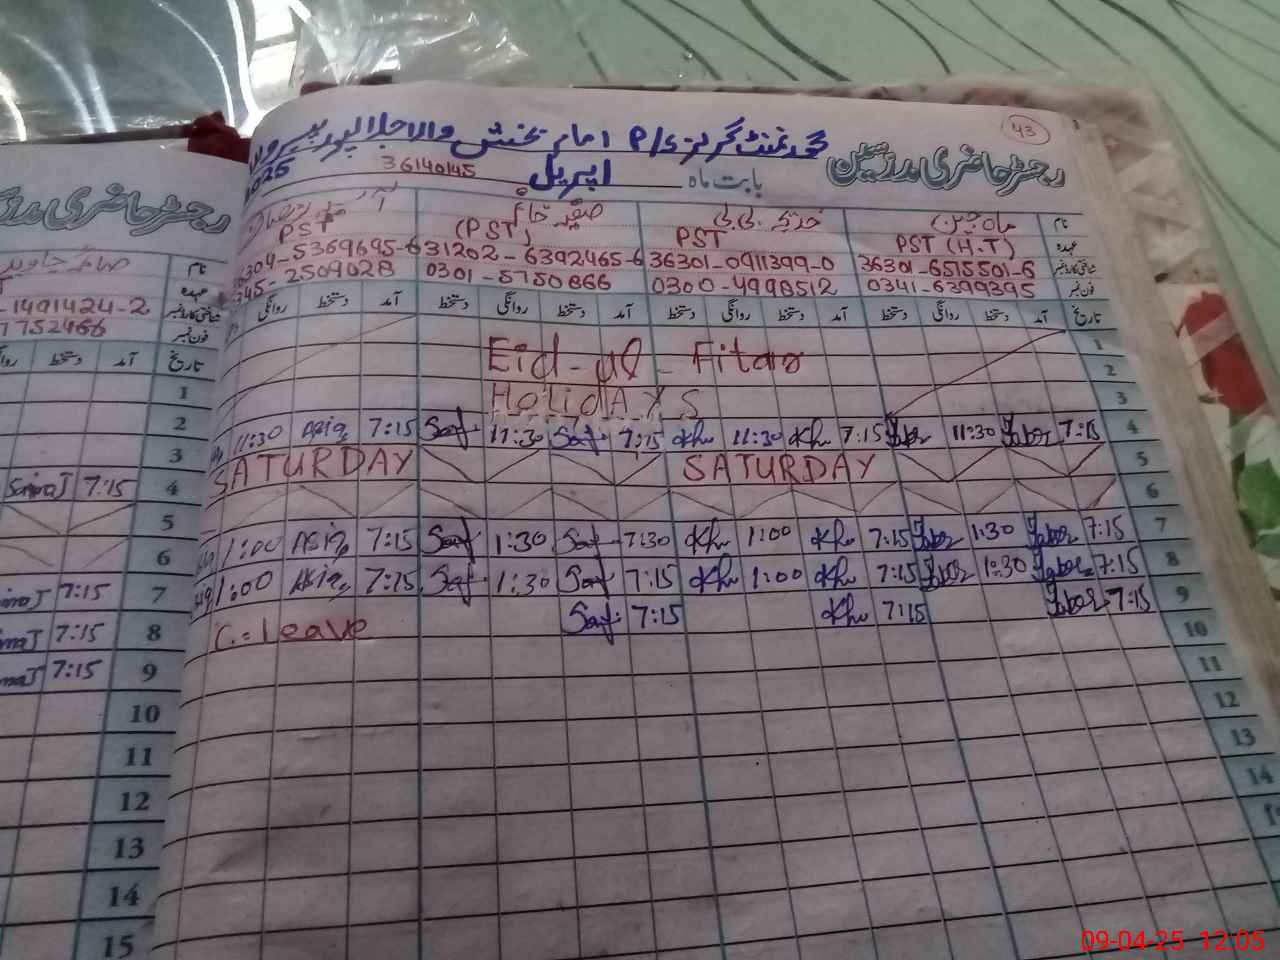 43
گورنمنٹ گرلز P/S امام بخش والا جلالپور پیروالا
رجسٹر حاضری مدرسین
بابت ماہ اپریل 36140145 2025
نام ماہ جبین خدیجہ بی بی
عہدہ PST (H.T) PST (PST) PST
شناختی کارڈ نمبر 36301-6515501-6 36301-0911399-0 31202-6392465-6 36304-5369695-6
فون نمبر 0341-6399395 0300-4998512 0301-5750866 0345-2509028
تاریخ آمد دستخط روانگی آمد دستخط روانگی آمد دستخط روانگی دستخط روانگی
1
2 Eid-ul-Fitar
3 Holidays
4 7:15 11:30 7:15 Kh 11:30 Kh 7:15 Saf 11:30 Saf 7:15 Asia 11:30
5 SATURDAY SATURDAY
6
7 7:15 1:30 7:15 Kh 1:00 Kh 7:30 Saf 1:30 Saf 7:15 Asia 1:00
8 7:15 1:30 7:15 Kh 1:00 Kh 7:15 Saf 1:30 Saf 7:15 Asia 1:00
9 7:15 7:15 Kh 7:15 Saf C.=leave
10
11
12
13
14
رجسٹر حاضری
نام صائمہ جاوید
عہدہ
شناختی کارڈ نمبر -1491424-2
فون نمبر 7752466
تاریخ آمد دستخط
1
2
3
4 7:15 SaimaJ
5
6
7 7:15
8 7:15
9 7:15
10
11
12
13
14
15
09-04-25 12:05